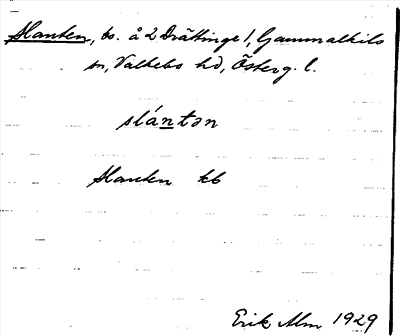 Slanten, ts. å 2 Drättinge 1, Gammalkils
sn, Valkebo hd, Österg. l.
slántən
Slanten kb
Erik Alm 1929